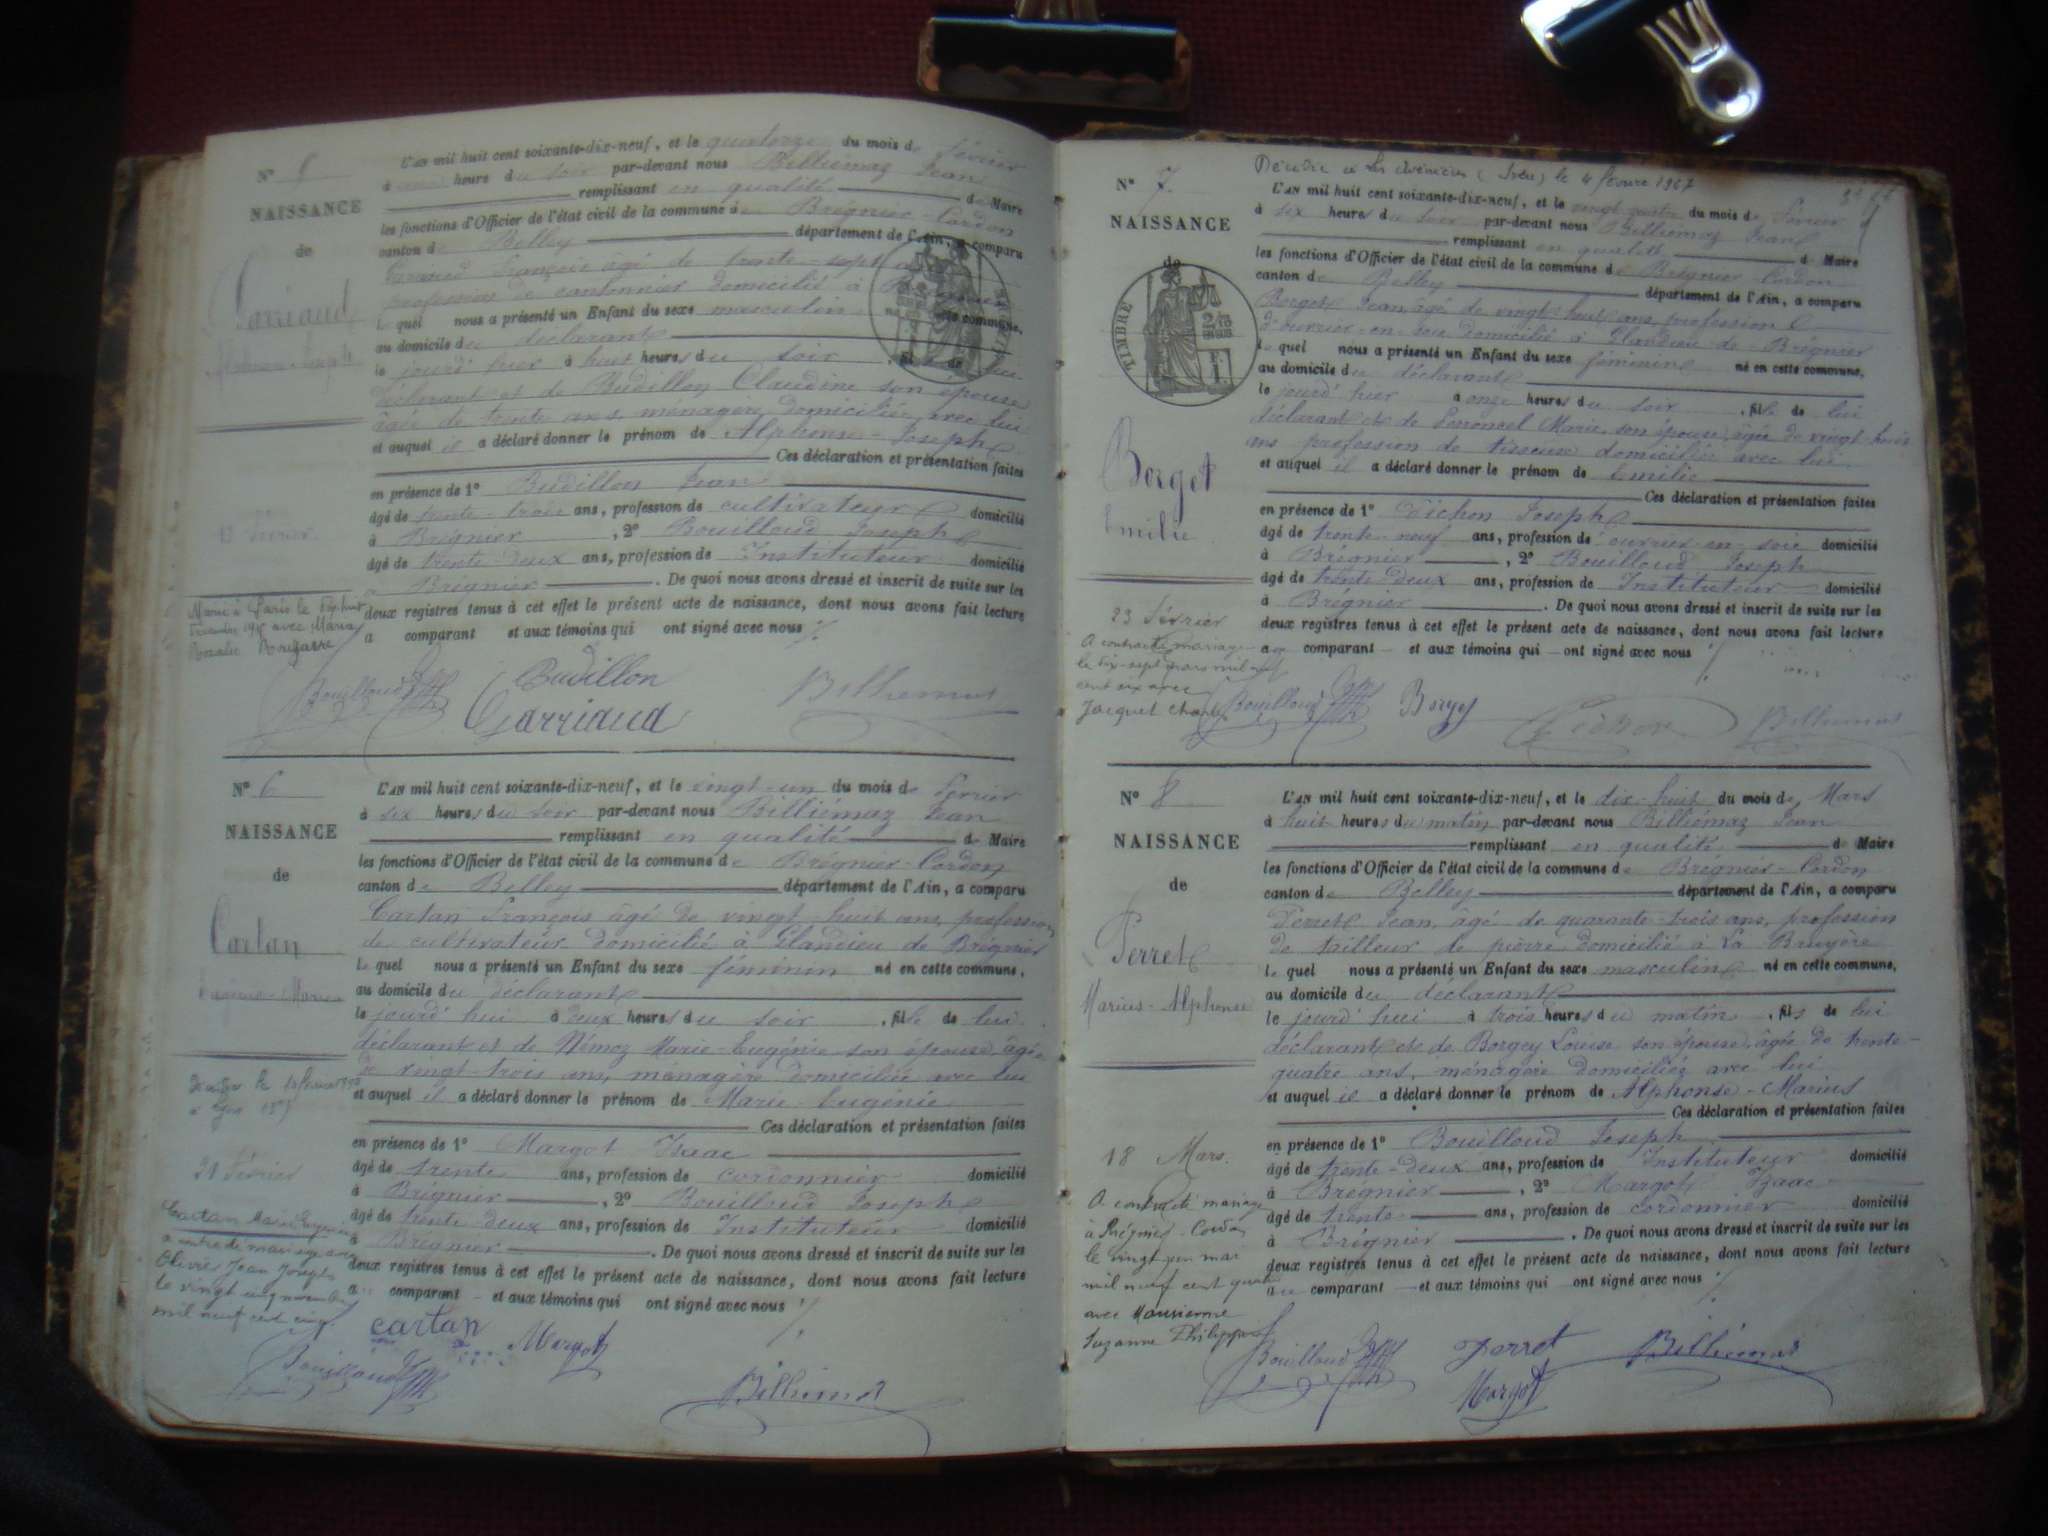 N° 5
NAISSANCE
de
Garriaud
Alphonse-Joseph
13 Février
Marié à Paris le
avec Maria
L'AN mil huit cent soixante-dix-neuf, et le quatorze du mois de Février
à heure du soir par-devant nous Billiémaz Jean
remplissant en qualité de Maire
les fonctions d'Officier de l'état civil de la commune de Brégnier-Cordon
canton de Belley département de l'Ain, a comparu
François âgé de trente-sept
profession de cantonnier domicilié à
le quel nous a présenté un Enfant du sexe masculin né cette commune,
au domicile du déclarant
le jourd'hier à huit heures du soir, fils de lui
déclarant et de Budillon Claudine son épouse
âgée de trente ans, ménagère domiciliée avec lui
et auquel il a déclaré donner le prénom de Alphonse-Joseph
Ces déclaration et présentation faites
en présence de 1° Budillon Jean
âgé de trente-trois ans, profession de cultivateur domicilié
à Brégnier, 2° Bouilloud Joseph
âgé de trente-deux ans, profession de Instituteur domicilié
Brégnier. De quoi nous avons dressé et inscrit de suite sur les
deux registres tenus à cet effet le présent acte de naissance, dont nous avons fait lecture
a comparant et aux témoins qui ont signé avec nous
Budillon
Bouilloud Garriaud Billiemaz
N° 6
NAISSANCE
de
Cartan
21 Février
Cartan Marie Eugénie
a contracté mariage avec
Olivier Jean Joseph
le vingt cinq novembre
mil neuf cent cinq.
L'AN mil huit cent soixante-dix-neuf, et le vingt-un du mois de Février
à six heures du soir par-devant nous Billiémaz Jean
remplissant en qualité de Maire
les fonctions d'Officier de l'état civil de la commune de Brégnier-Cordon
canton de Belley département de l'Ain, a comparu
Cartan François âgé de vingt-huit ans, profession
de cultivateur domicilié à Glandieu de Brégnier
le quel nous a présenté un Enfant du sexe féminin né en cette commune,
au domicile du déclarant
le jourd'hui à deux heures du soir, fille de lui
déclarant et de Némoz Marie-Eugénie son épouse, âgée
de vingt-trois ans, ménagère domiciliée avec lui
et auquel il a déclaré donner le prénom de Marie-Eugénie
Ces déclaration et présentation faites
en présence de 1° Margot Isaac
âgé de trente ans, profession de cordonnier domicilié
à Brégnier, 2° Bouilloud Joseph
âgé de trente deux ans, profession de Instituteur domicilié
à Brégnier. De quoi nous avons dressé et inscrit de suite sur les
deux registres tenus à cet effet le présent acte de naissance, dont nous avons fait lecture
au comparant et aux témoins qui ont signé avec nous
cartan Margot
Bouilloud Billiemaz
Décédée à les Avenières (Isère) le 4 février 1967
N° 7
NAISSANCE
de
TIMBRE
Borget
Emilie
23 Février
A contracté mariage
le dix-sept mars mil neuf
cent six avec
Jacquet
L'AN mil huit cent soixante-dix-neuf, et le vingt quatre du mois de Février
à six heures du soir par-devant nous Billiémaz Jean
remplissant en qualité de Maire
les fonctions d'Officier de l'état civil de la commune de Brégnier-Cordon
canton de Belley département de l'Ain, a comparu
Borget Jean, âgé de vingt huit ans, profession
d'ouvrier-en-soie domicilié à Glandieu de Brégnier
le quel nous a présenté un Enfant du sexe féminin né en cette commune,
au domicile du déclarant
le jourd'hier à onze heures du soir, fille de lui
déclarant et de Marie son épouse, âgée de vingt-huit
ans profession de tisseuse domiciliée avec lui
et auquel il a déclaré donner le prénom de Emilie
Ces déclaration et présentation faites
en présence de 1° Pichon Joseph
âgé de trente-neuf ans, profession d'ouvrier-en-soie domicilié
à Brégnier, 2° Bouilloud Joseph
âgé de trente-deux ans, profession de Instituteur domicilié
à Brégnier. De quoi nous avons dressé et inscrit de suite sur les
deux registres tenus à cet effet le présent acte de naissance, dont nous avons fait lecture
au comparant et aux témoins qui ont signé avec nous
Bouilloud Borget Pichon Billiemaz
N° 8
NAISSANCE
de
Perret
Marius-Alphonse
18 Mars.
A contracté mariage
à Brégnier-Cordon
le vingt un mai
mil neuf cent quatre
avec
Suzanne
L'AN mil huit cent soixante-dix-neuf, et le dix-huit du mois de Mars
à huit heures du matin par-devant nous Billiémaz Jean
remplissant en qualité de Maire
les fonctions d'Officier de l'état civil de la commune de Brégnier-Cordon
canton de Belley département de l'Ain, a comparu
Perret Jean, âgé de quarante-trois ans, profession
de tailleur de pierre domicilié à La Bruyère
le quel nous a présenté un Enfant du sexe masculin né en cette commune,
au domicile du déclarant
le jourd'hui à trois heures du matin, fils de lui
déclarant et de Borgey Louise son épouse, âgée de trente-
quatre ans, ménagère domiciliée avec lui
et auquel il a déclaré donner le prénom de Alphonse-Marius
Ces déclaration et présentation faites
en présence de 1° Bouilloud Joseph
âgé de trente-deux ans, profession de Instituteur domicilié
à Brégnier, 2° Margot Isaac
âgé de trente ans, profession de cordonnier domicilié
à Brégnier. De quoi nous avons dressé et inscrit de suite sur les
deux registres tenus à cet effet le présent acte de naissance, dont nous avons fait lecture
au comparant et aux témoins qui ont signé avec nous
Bouilloud Perret Billiémaz
Margot